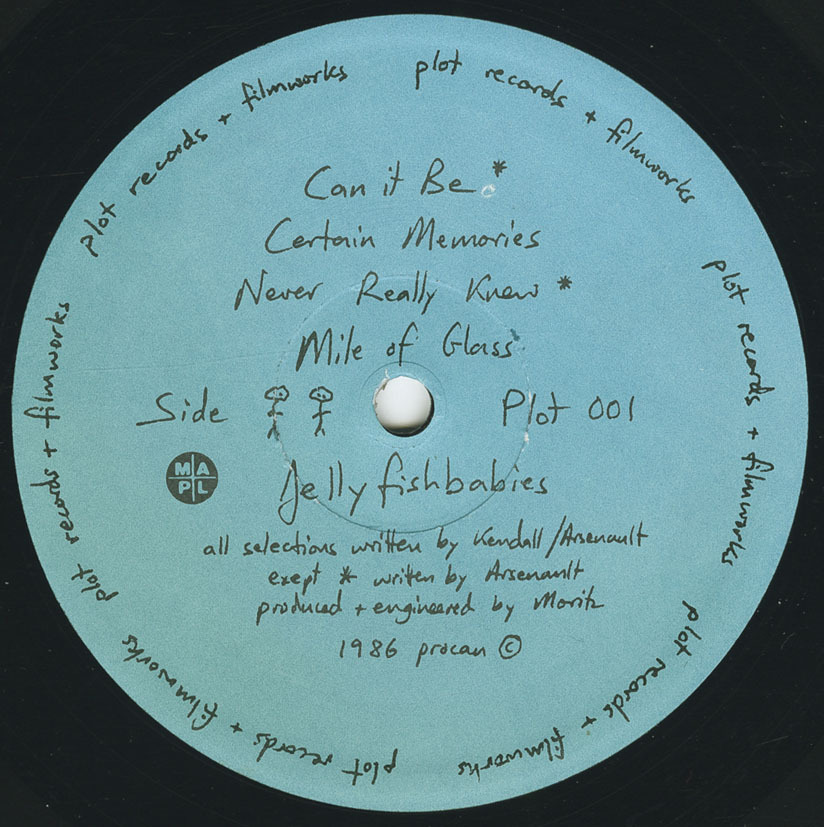 plot records + filmworks
plot records + filmworks
plot records + filmworks
plot records + filmworks
plot records + filmworks
plot records + filmworks
plot records + filmworks
Can it Be *
Certain Memories
Never Really Knew *
Mile of Glass
Side
Plot 001
MAPL
Jellyfishbabies
all selections written by Kendall/Arsenault
exept * written by Arsenault
produced + engineered by Moritz
1986 procan ©